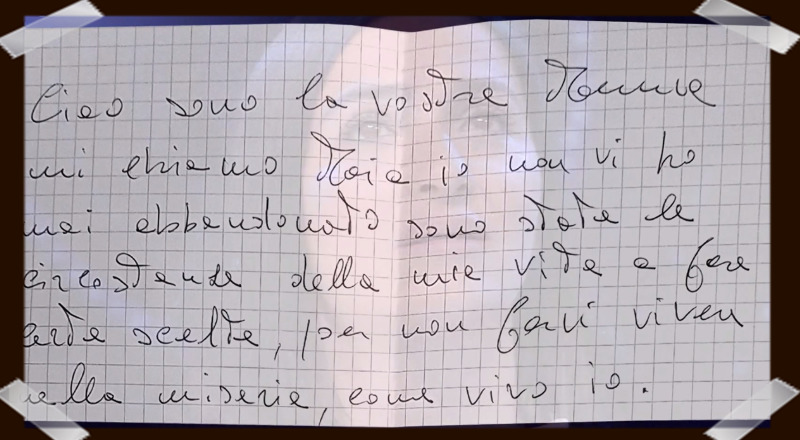 Ciao sono la vostra Mamma
mi chiamo Maia io non vi ho
mai abbandonato sono state le
circostanze della mia vita a fare
certe scelte, per non farvi vivere
nella miseria, come vivo io.